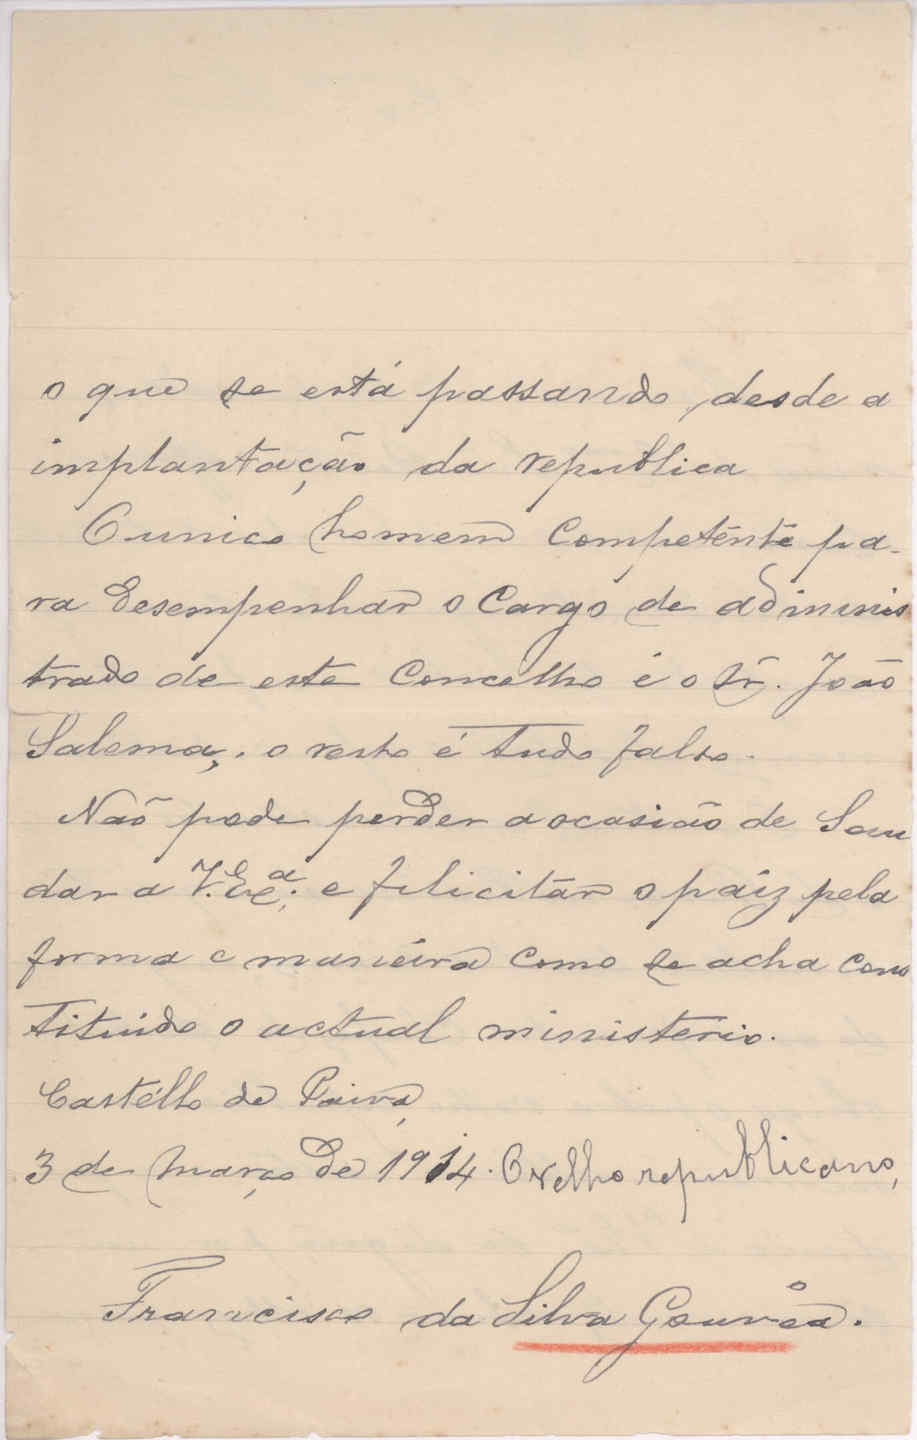 o que se está passando, desde a
implantação da republica
O unico homem competênte pa-
ra desempenhar o cargo de adiminis
trado de este concelho é o Sr. João
Salema,. o resto é tudo falso.
Não pode perder a ocasião de Sau
dar a V. Exª; e felicitar o paiz pela
forma e manieira como se acha cons
tituido o actual ministerio.
Castéllo de Paiva,
3 de Março de 1914. O velho republicano,
Francisco da Silva Gouvêa.